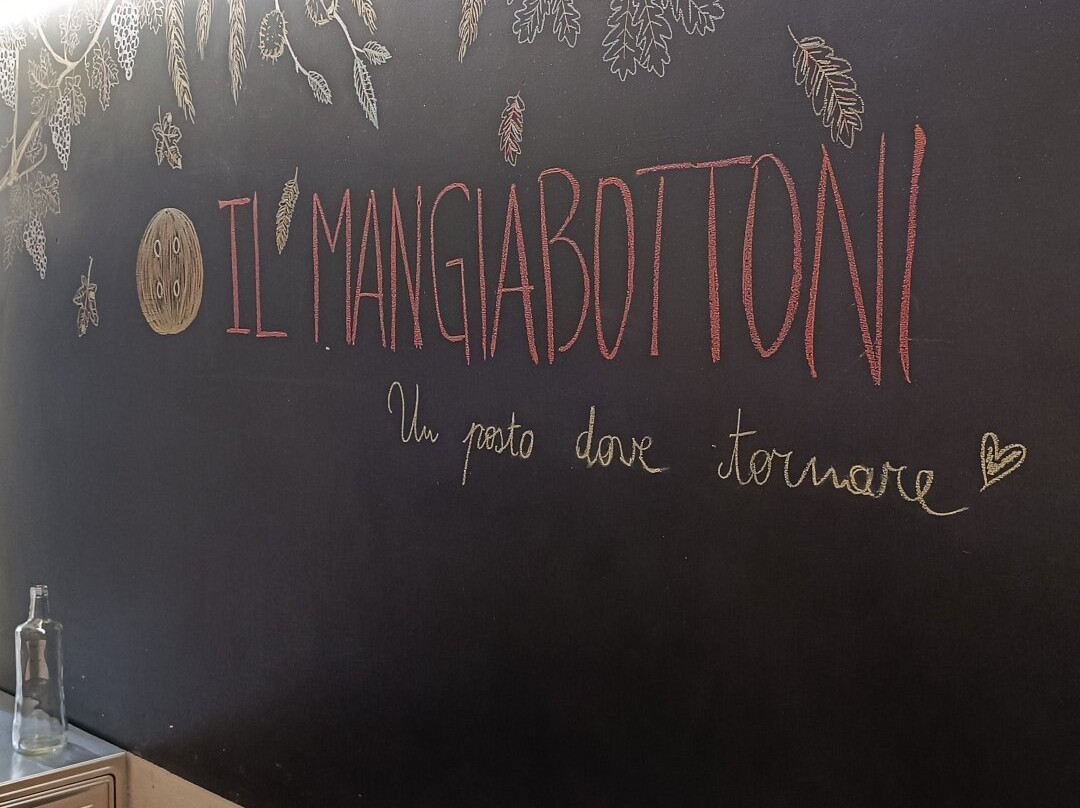 IL MANGIABOTTONI
Un posto dove tornare